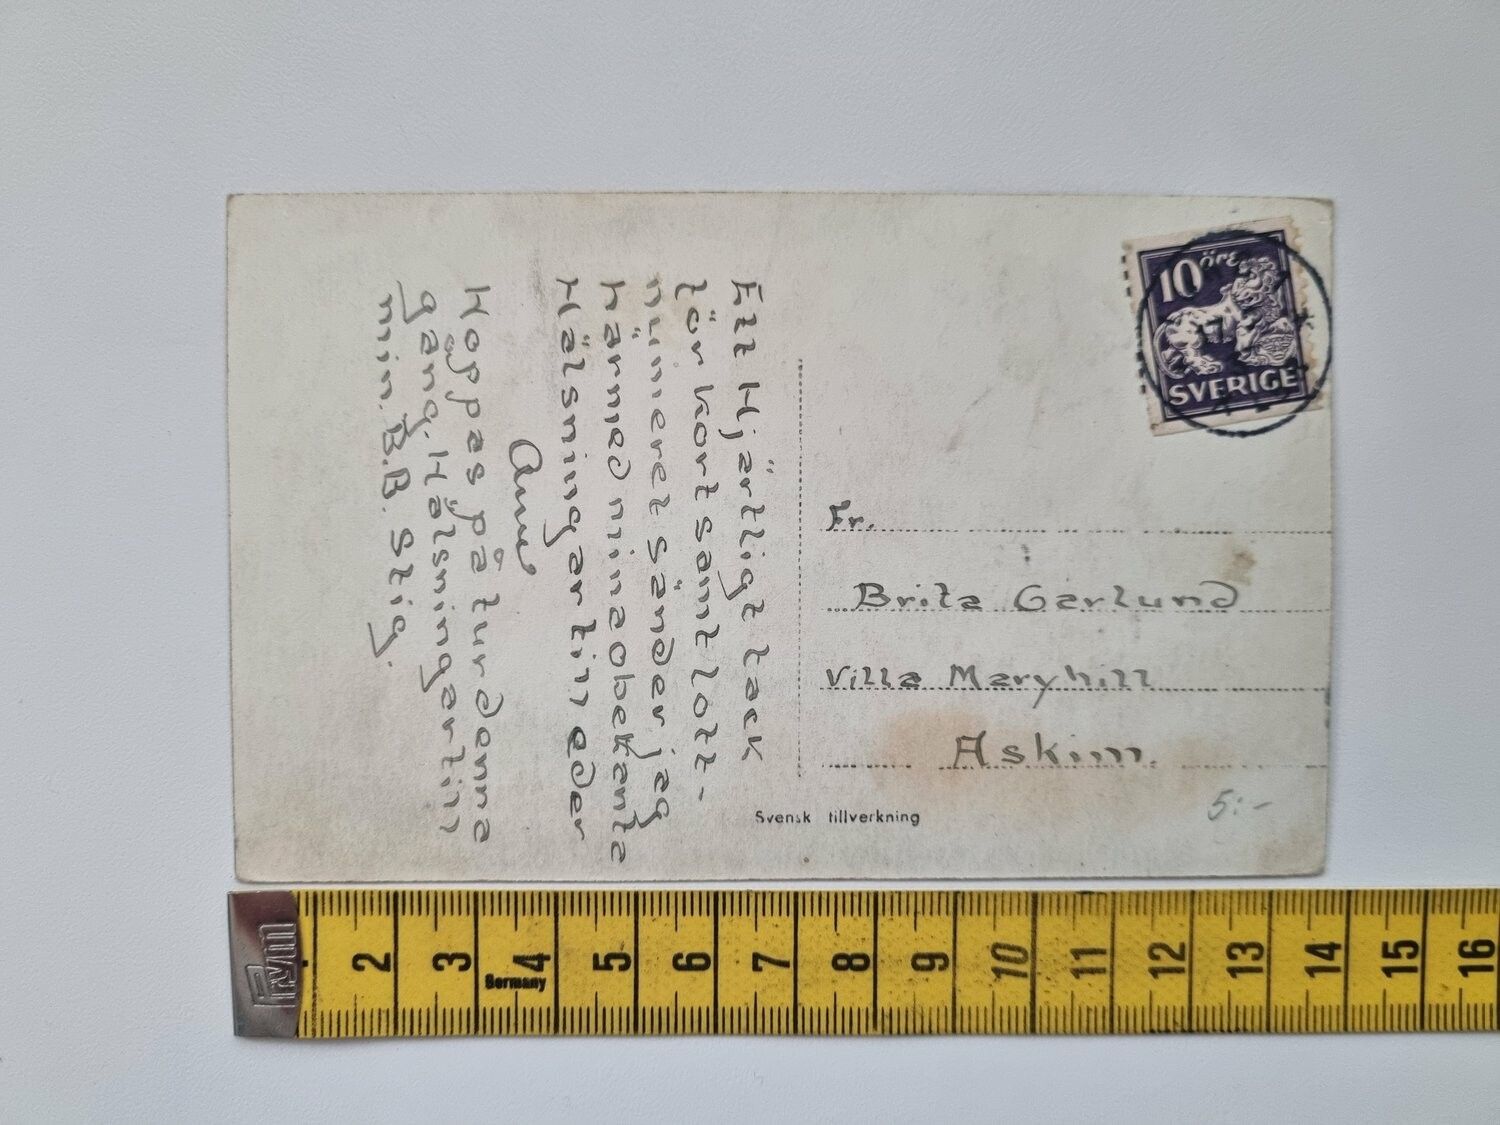 Ett Hjärtligt tack
för kort samt lott-
numeret sänder jag
härmed mina obekanta
Hälsningar till eder
Hoppas på tur denna
gång. Hälsningar till
min. B.B. Stig.
10 öre
SVERIGE
Fr.
Brita Garlund
Villa Maryhill
Askim.
5:-
Svensk tillverkning
2 3 4 5 6 7 8 9 10 11 12 13 14 15 16
Germany